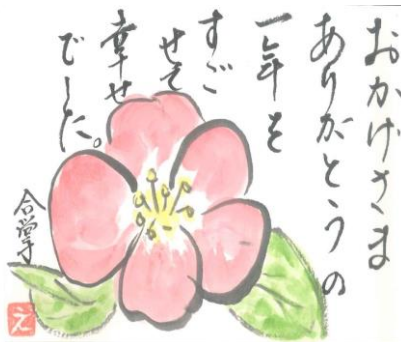 おかげさま
ありがとうの
一年を
すご
せて
幸せ
でした。
合掌
え